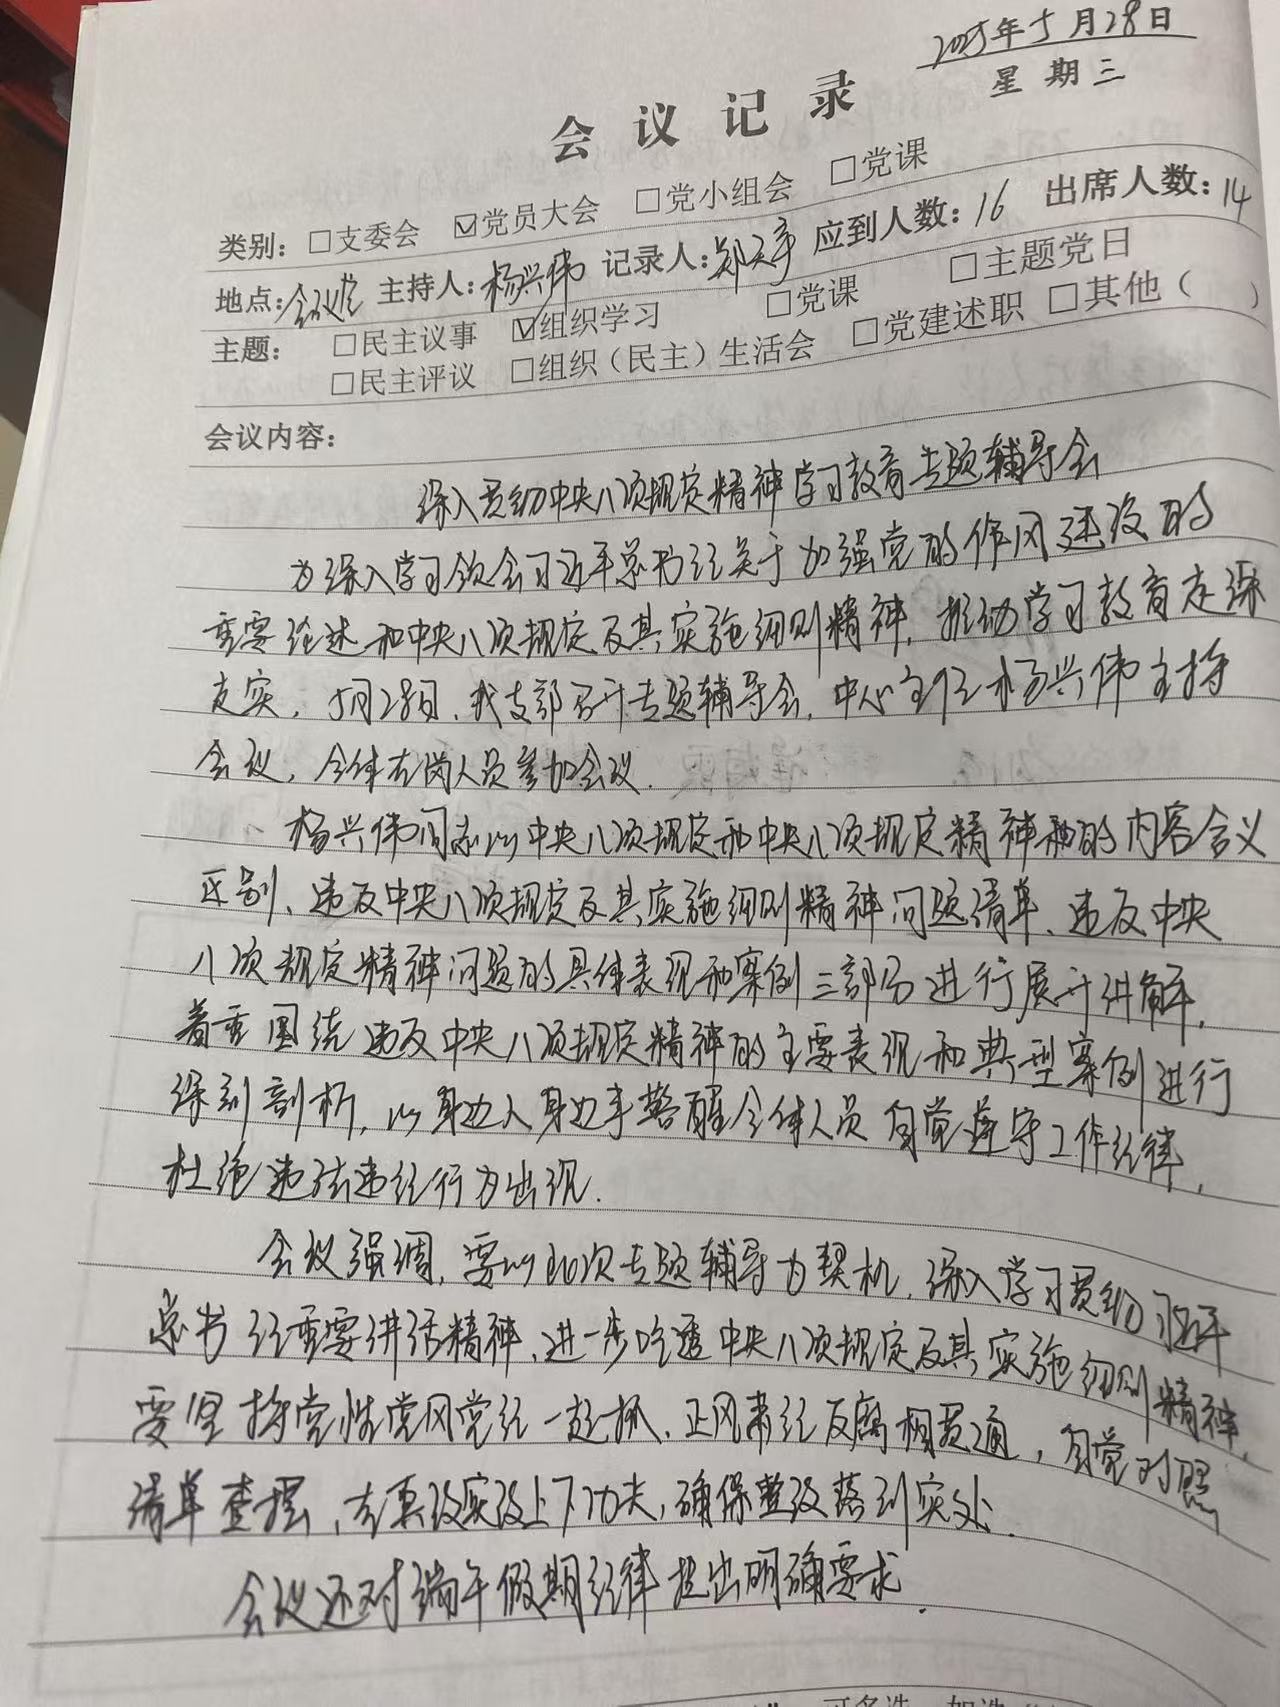 2025年5月28日
星期三
会议记录
类别：□支委会 ☑党员大会 □党小组会 □党课
地点：会议室 主持人：杨兴伟 记录人： 应到人数：16 出席人数：14
主题： □民主议事 ☑组织学习 □党课 □主题党日
□民主评议 □组织（民主）生活会 □党建述职 □其他（ ）
会议内容：
深入贯彻中央八项规定精神学习教育专题辅导会
为深入学习领会习近平总书记关于加强党的作风建设的
重要论述和中央八项规定及其实施细则精神，推动学习教育走深
走实，5月28日，我支部召开专题辅导会，中心主任杨兴伟主持
会议，全体在岗人员参加会议.
杨兴伟同志以中央八项规定和中央八项规定精神的内容含义
区别、违反中央八项规定及其实施细则精神问题清单、违反中央
八项规定精神问题的具体表现和案例三部分进行展开讲解，
着重围绕违反中央八项规定精神的主要表现和典型案例进行
深刻剖析，以身边人身边事警醒全体人员自觉遵守工作纪律，
杜绝违法违纪行为出现.
会议强调，要以此次专题辅导为契机，深入学习贯彻习近平
总书记重要讲话精神，进一步吃透中央八项规定及其实施细则精神，
要坚持党性党风党纪一起抓、正风肃纪反腐相贯通，自觉对照
清单查摆，在真改实改上下功夫，确保整改落到实处.
会议还对端午假期纪律提出明确要求.